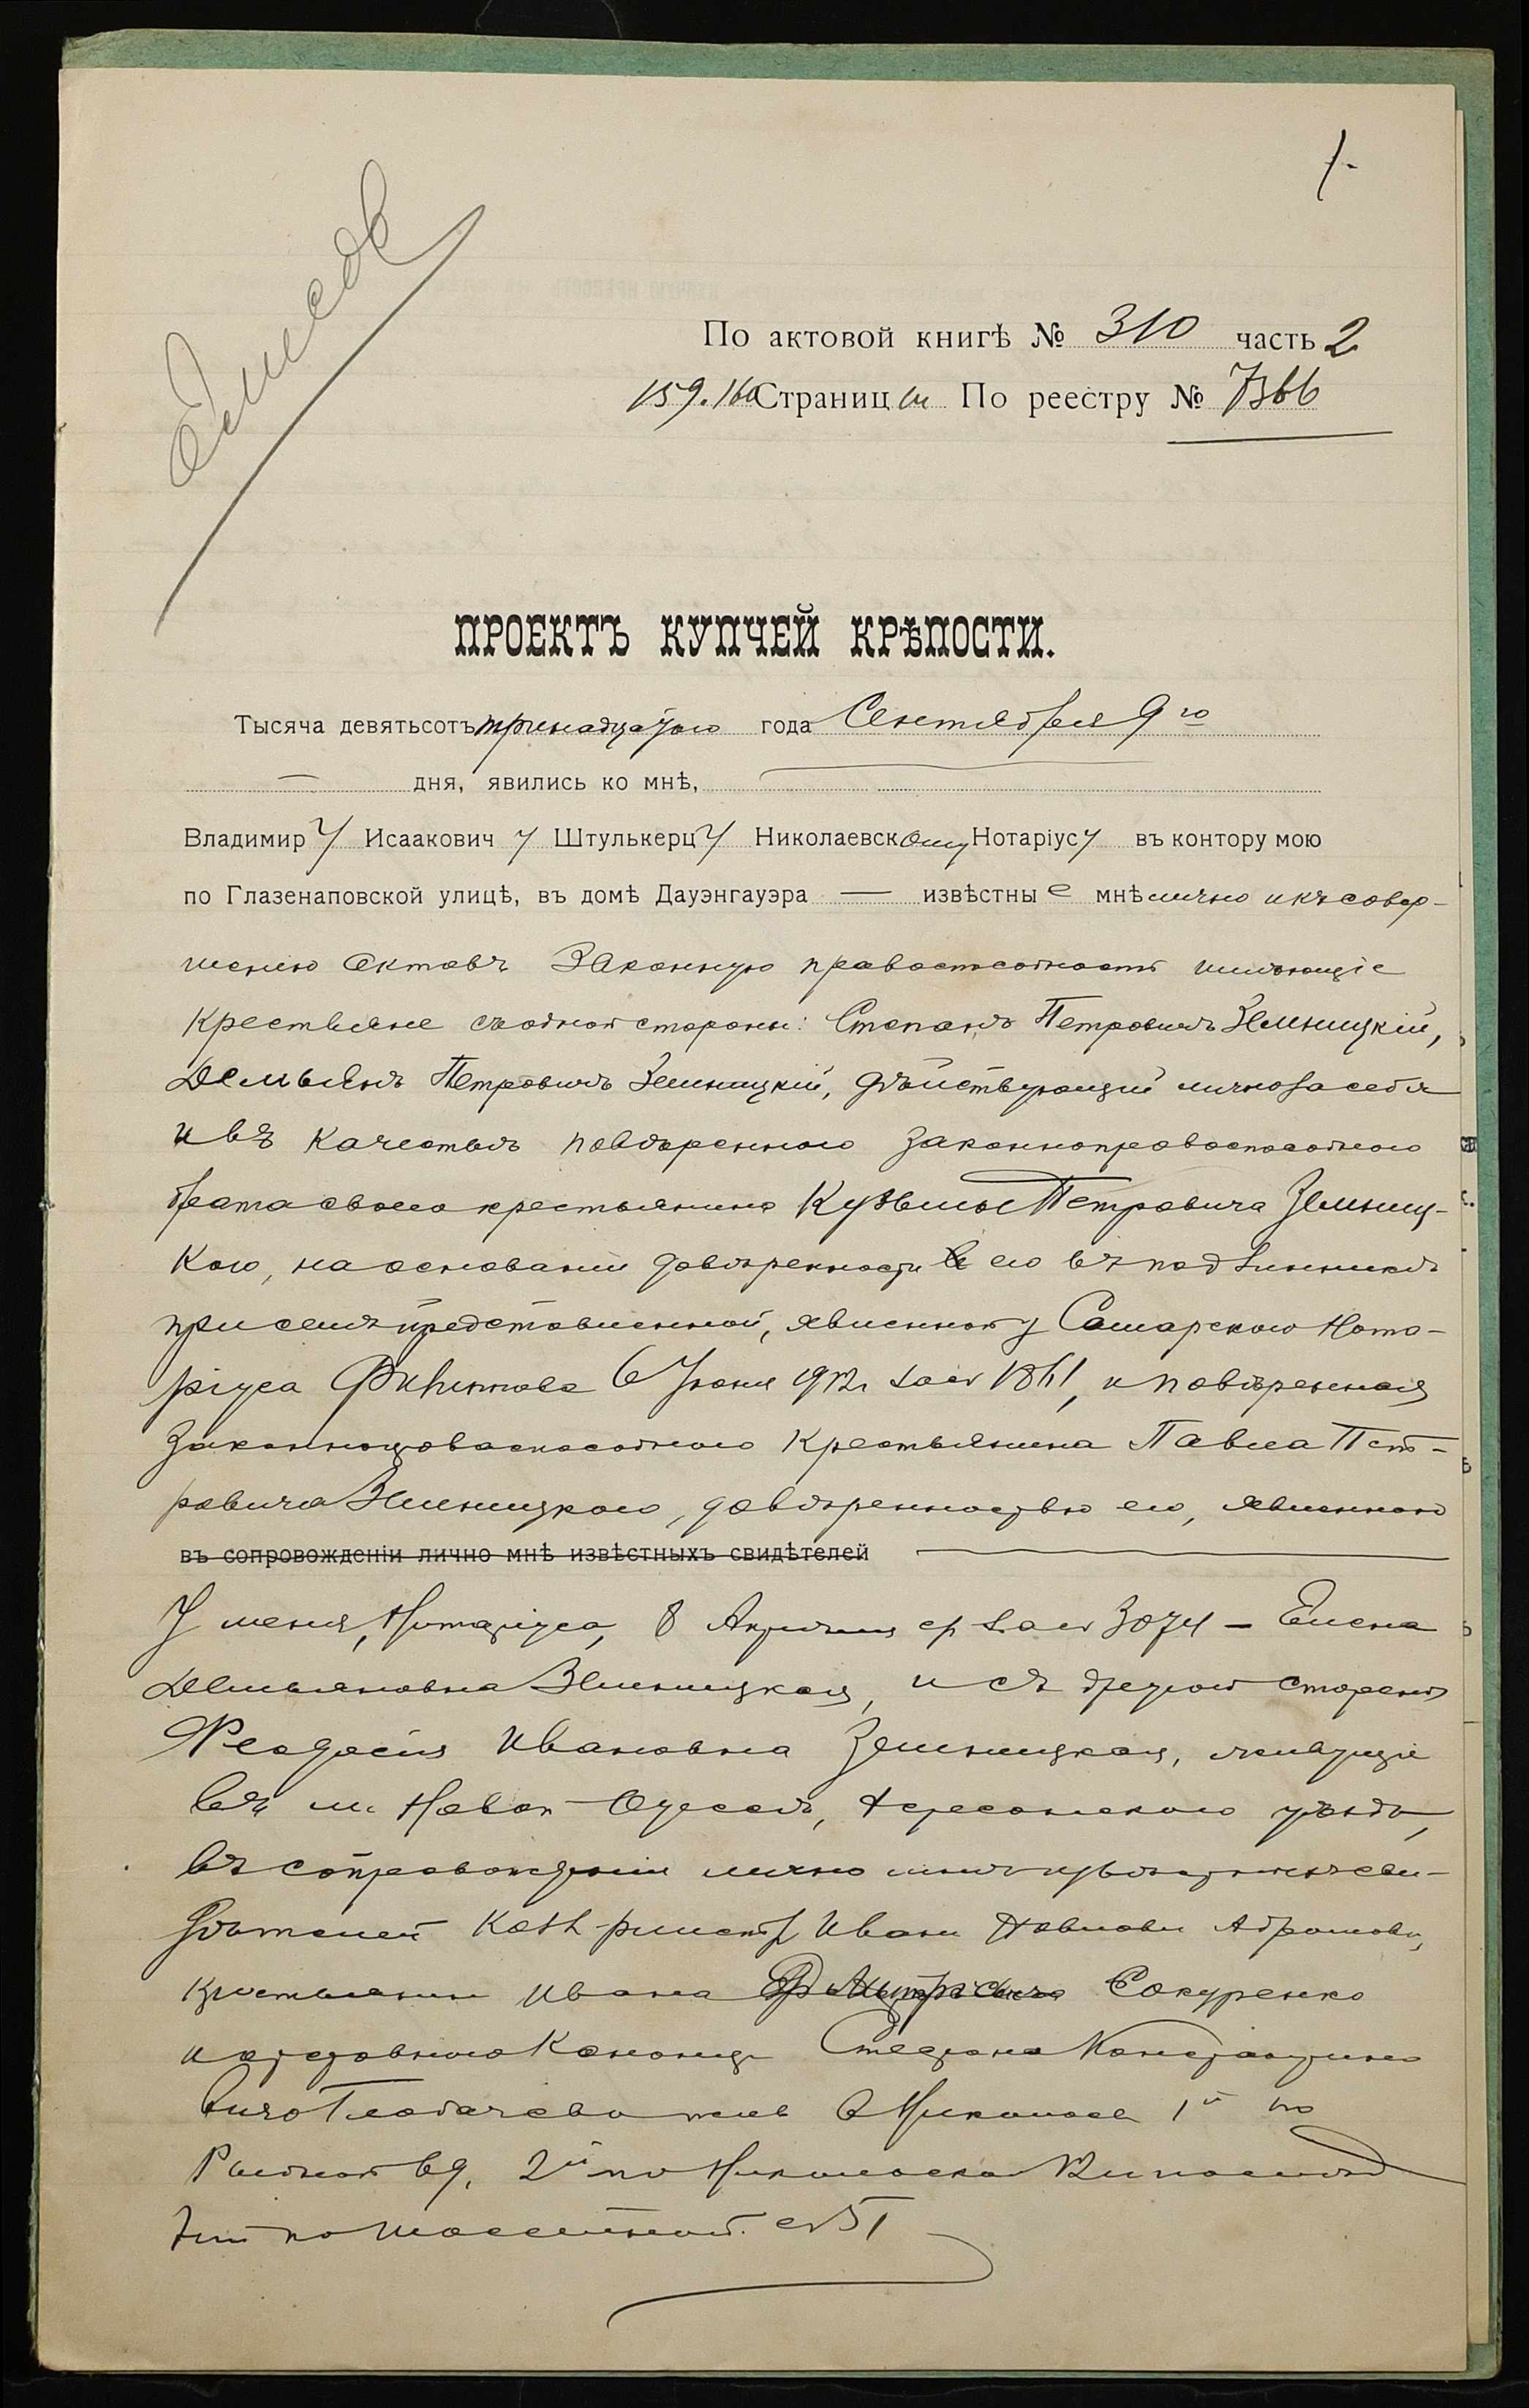 1.
По актовой книгѣ № 310 часть 2
159.160 Страницы По реестру № 7366
ПРОЕКТЪ КУПЧЕЙ КРѢПОСТИ.
Тысяча девятьсотъ тринадцатого года Сентября 9го
дня, явились ко мнѣ,
Владимиру Исаакович у Штулькерцу Николаевскому Нотаріусу въ контору мою
по Глазенаповской улицѣ, въ домѣ Дауэнгауэра — извѣстные мнѣ лично и къ совер-
шенію актовъ законную правоспособность имѣющіе
крестьяне съ одной стороны: Степанъ Петровичъ Зелницкій,
Демьянъ Петровичъ Зелницкій, дѣйствующій лично за себя
и въ качествѣ повѣреннаго законноправоспособнаго
брата своего крестьянина Кузьмы Петровича Зелниц-
кого, на основаніи довѣренности его въ подлинникѣ
при семъ представленной, явленной у Самарского Нота-
ріуса 6 Іюня 1912 г. за № 1861, и повѣренная
законноправоспособнаго крестьянина Павла Пет-
ровича Зелницкого, довѣренностью его, явленною
въ сопровожденіи лично мнѣ извѣстныхъ свидѣтелей
У меня, Нотаріуса, 8 Апрѣля с/г за № 3074 — Елена
Демьяновна Зелницкая, и съ другой стороны
Феодосія Ивановна Зелницкая, живущіе
въ м. Новой Одессѣ, Херсонского уѣзда,
въ сопровожденіи лично мнѣ извѣстныхъ сви-
дѣтелей Ивана Абрамова,
крестьянина Ивана Дмитріевича Сокуренко
и Стефана Константино
вича жив. въ Николаевѣ 1й по
Рыбной въ д. 2й по Николаевской
по